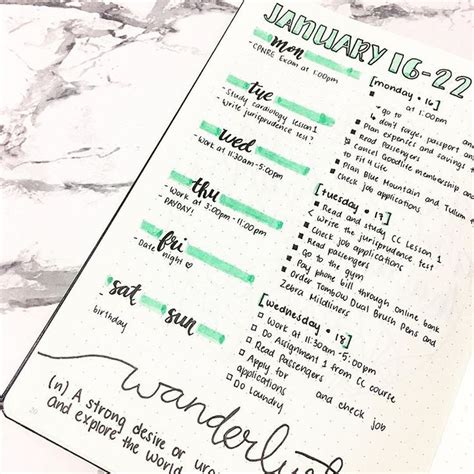 JANUARY 16-22
mon
- CPNRE Exam at 1:00pm
tue
- Study cardiology lesson 1
- Write jurisprudence test?
wed
- Work at 11:30am-5:00pm
thu
- Work at 3:00pm-11:00pm
- PAYDAY!
fri
- Date night ♡
sat sun
birthday
[monday • 16]
at 1:00pm
go to
↳ don't forget passport and
Plan expenses and savings
Cancel Goodlife membership
to Fit 4 Life
Plan Blue Mountain and Tulum
Check job applications
[tuesday • 17]
Read and study CC Lesson 1
< Write the jurisprudence test
Check job applications
Read Passengers
Go to the gym
Pay phone bill through online bank
Order Tombow Dual Brush Pens and
Zebra Mildliners
[wednesday • 18]
Work at 11:30am-5:00pm
Do Assignment 1 from CC course
Read Passengers
Apply for and check job
applications
Do laundry
(n) A strong desire or
and explore the world